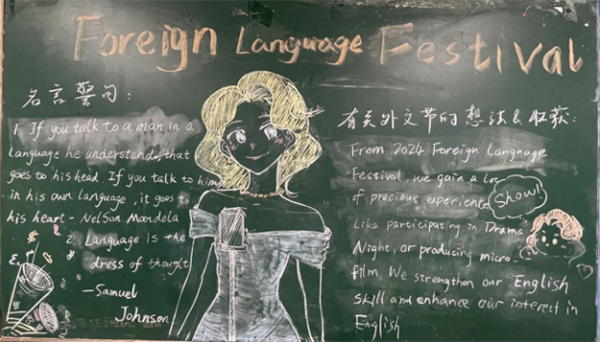 Foreign Language Festival
名言警句:
1. If you talk to a man in a
language he understands, that
goes to his head. If you talk to him
in his own language, it goes to
his heart - Nelson Mandela
2. Language is the
dress of thought
—Samuel
Johnson
有关外文节的想法&收获:
From 2024 Foreign Language
Festival, we gain a lot
of precious experience
Show!
Like participating in Drama
Night, or producing micro
film. We strengthen our English
skill and enhance our interest in
English